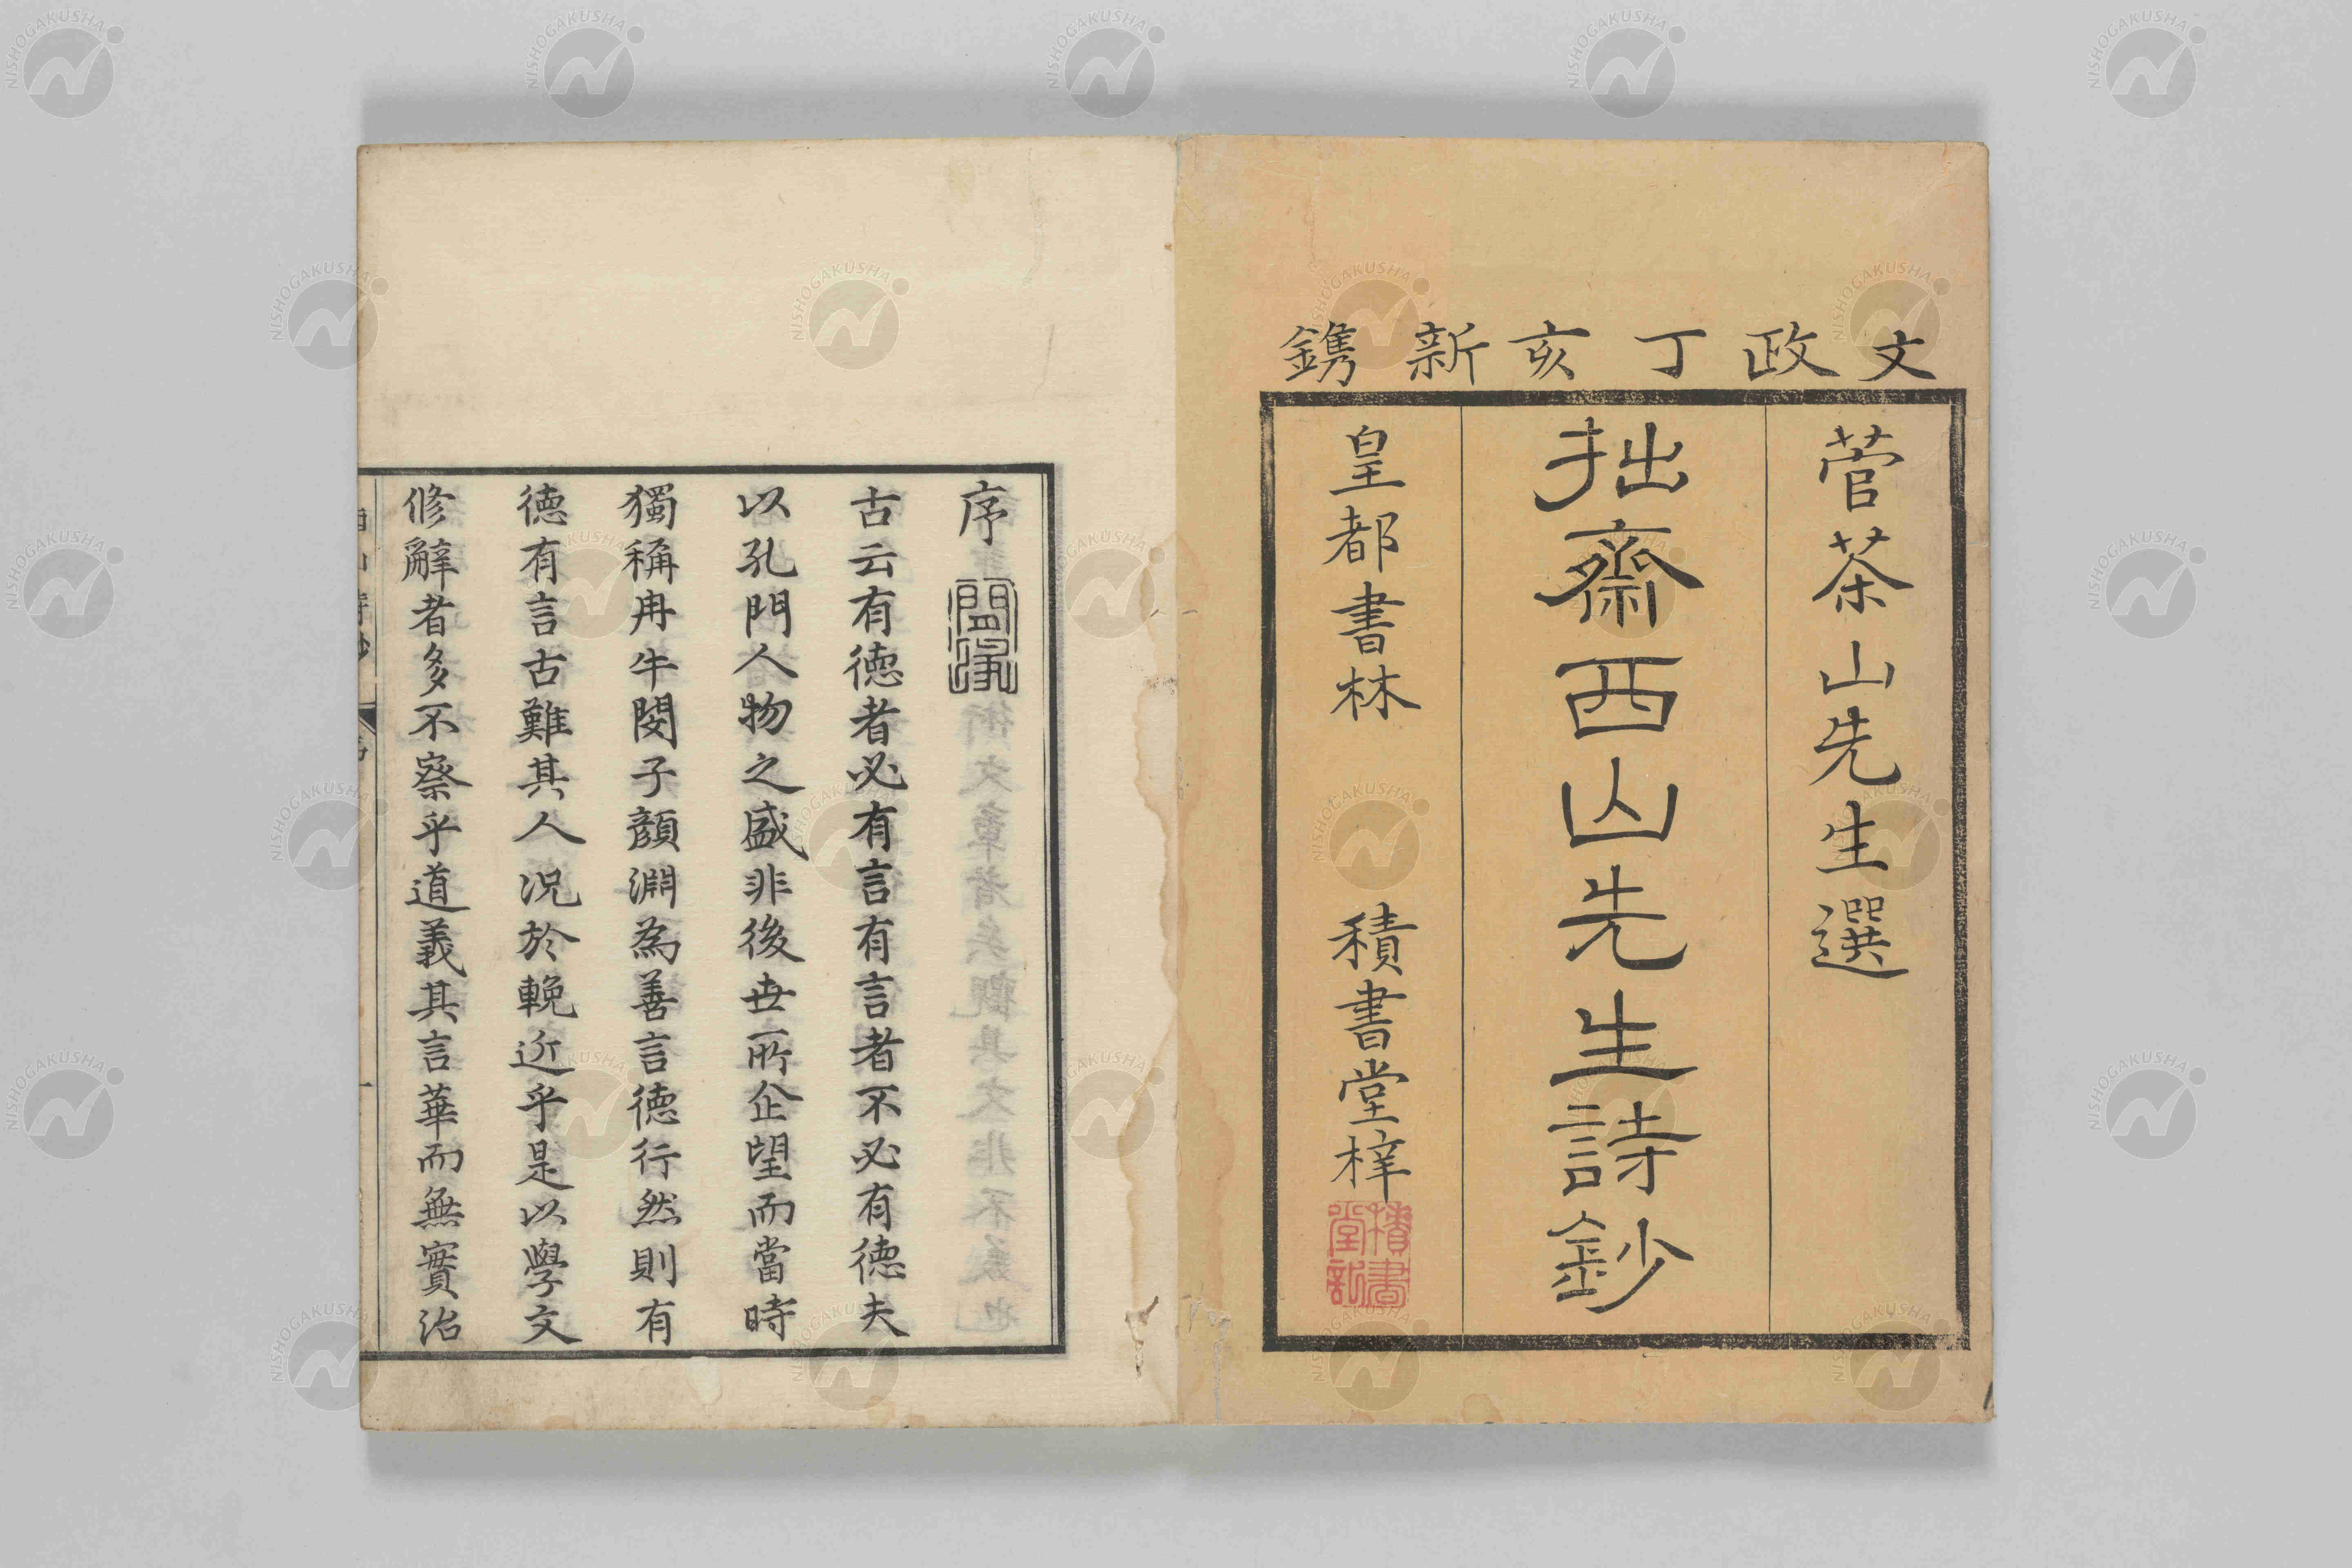 文政丁亥新鐫
菅茶山先生選
拙齋西山先生詩鈔
皇都書林　積書堂梓
積書堂記
序
古云有德者必有言有言者不必有德夫
以孔門人物之盛非後世所企望而當時
獨稱冉牛閔子顏淵為善言德行然則有
德有言古難其人況於輓近乎是以學文
修辭者多不察乎道義其言華而無實治
NISHOGAKUSHA